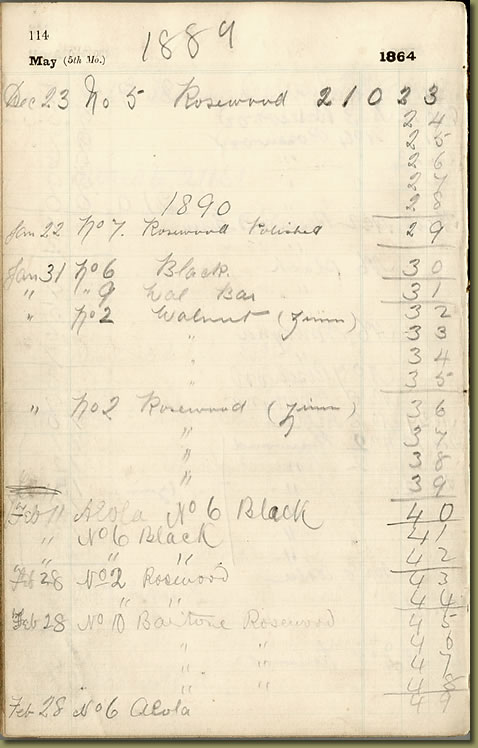 114
1889
May (5th Mo.) 1864
Dec 23 No 5 Rosewood 2 1 0 2 3
2 4
2 5
2 6
2 7
2 8
1890
Jan 22 No 7. Rosewood Polished 2 9
Jan 31 No 6 Black. 3 0
" " 9 Wal Bar 3 1
" No 2 Walnut (Zimm) 3 2
" 3 3
" 3 4
" 3 5
" No 2 Rosewood (Zimm) 3 6
" 3 7
" 3 8
" 3 9
Feb 11 Aeola No 6 Black 4 0
" No 6 Black 4 1
" " " 4 2
Feb 28 No 2 Rosewood 4 3
" " 4 4
Feb 28 No 10 Baritone Rosewood 4 5
" " 4 6
" " 4 7
" " 4 8
Feb 28 No 6 Aeola 4 9